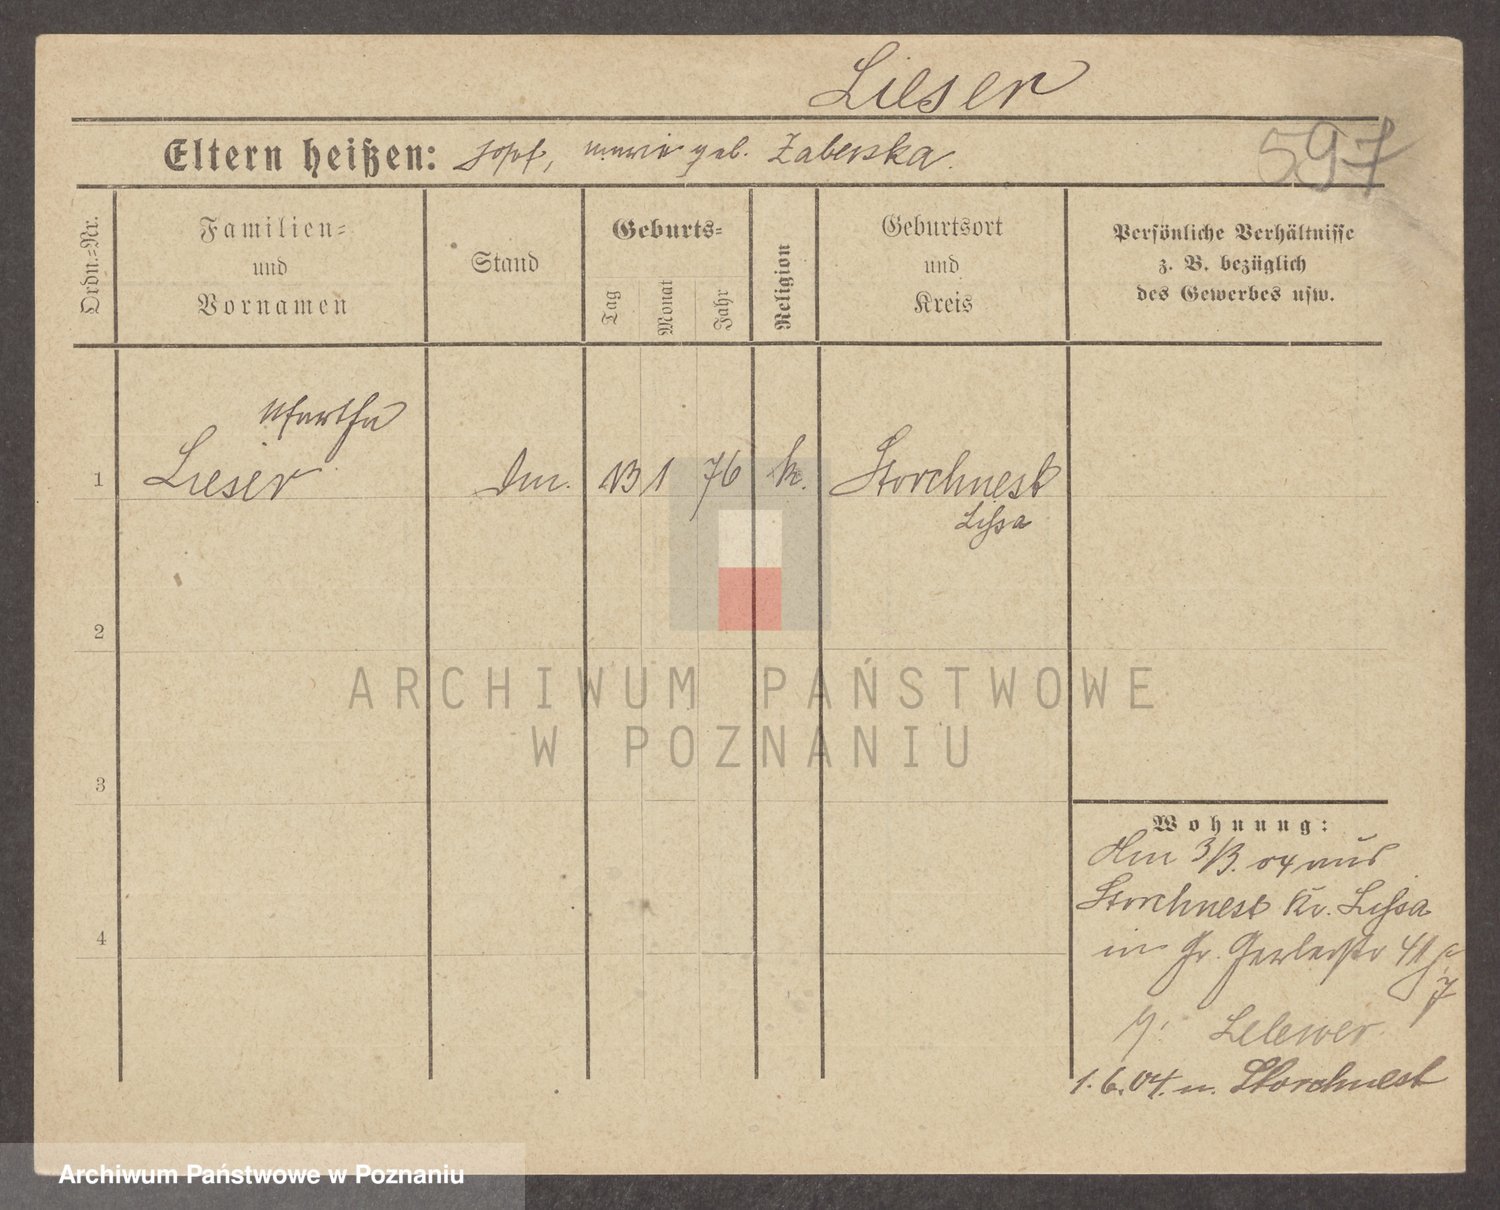 Lieser
597
Eltern heißen: Josef, Marie geb. Zaberska.
Ordn.-Nr.
Familien-
und
Vornamen
Stand
Geburts-
Tag
Monat
Jahr
Religion
Geburtsort
und
Kreis
Persönliche Verhältnisse
z. B. bezüglich
des Gewerbes usw.
Martha
1 Lieser 13 1 76 k. Storchnest
Lissa
2
3
4
Wohnung:
Am 3/3. 04 aus
Storchnest Kr. Lissa
in Gr. Gerberstr 41
Lelewer
1.6.04. n. Storchnest
ARCHIWUM PAŃSTWOWE
W POZNANIU
Archiwum Państwowe w Poznaniu